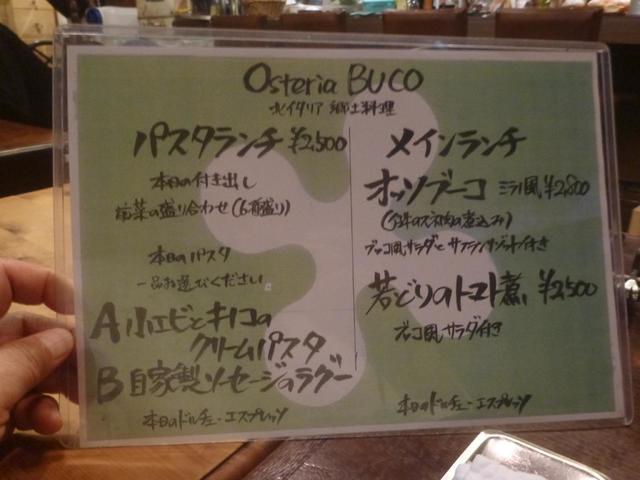 Osteria BUCO
北イタリア 郷土料理
パスタランチ ¥2,500
本日の付き出し
前菜の盛り合わせ(6種盛り)
本日のパスタ
一品お選びください
A 小エビとキノコの
クリームパスタ
B 自家製ソーセージのラグー
本日のドルチェ・エスプレッソ
メインランチ
オッソブーコ ミラノ風 ¥2,800
(仔牛のスネ肉の煮込み)
ブッコ風サラダとサフランリゾット付き
若どりのトマト煮 ¥2,500
ブッコ風サラダ付き
本日のドルチェ・エスプレッソ